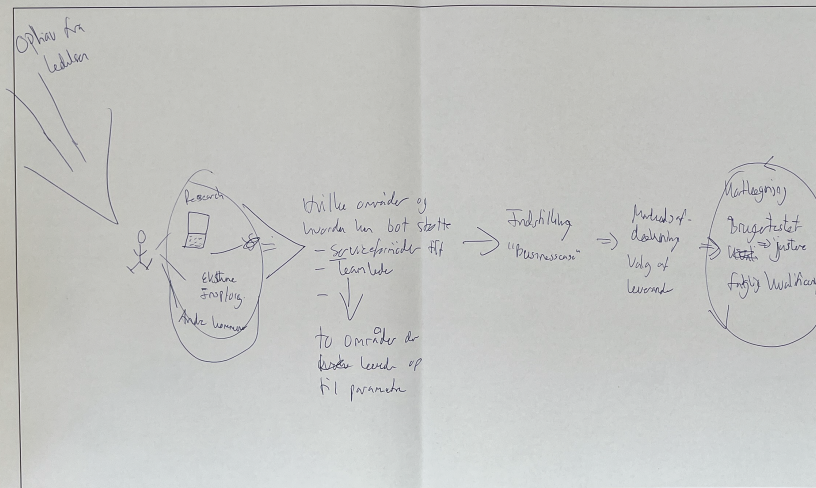 Ophav fra
ledelsen
Research
Eksterne
Andre kommuner
Hvilke områder og
hvordan kan bot støtte
- Serviceområder
- Teamleder
-
to områder der
levede op
til parametre
Indstilling
"Businesscase"
Markedsaf-
dækning
Valg af
leverandør
Kortlægning
Brugertestet
=> justere
Faglig kvalificering